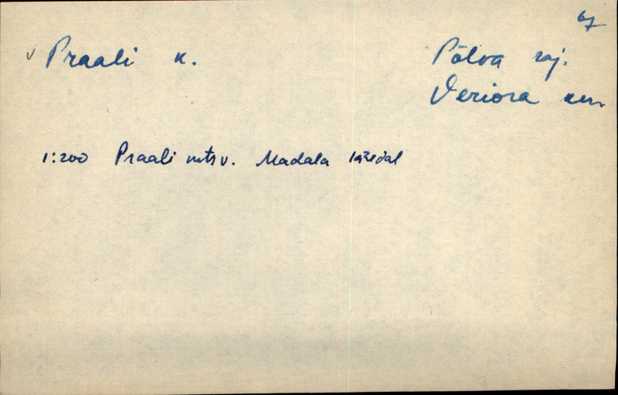 67
v Praali k. Põlva raj.
Veriora kn.
1:200 Praali mtsv. Madala lähedal